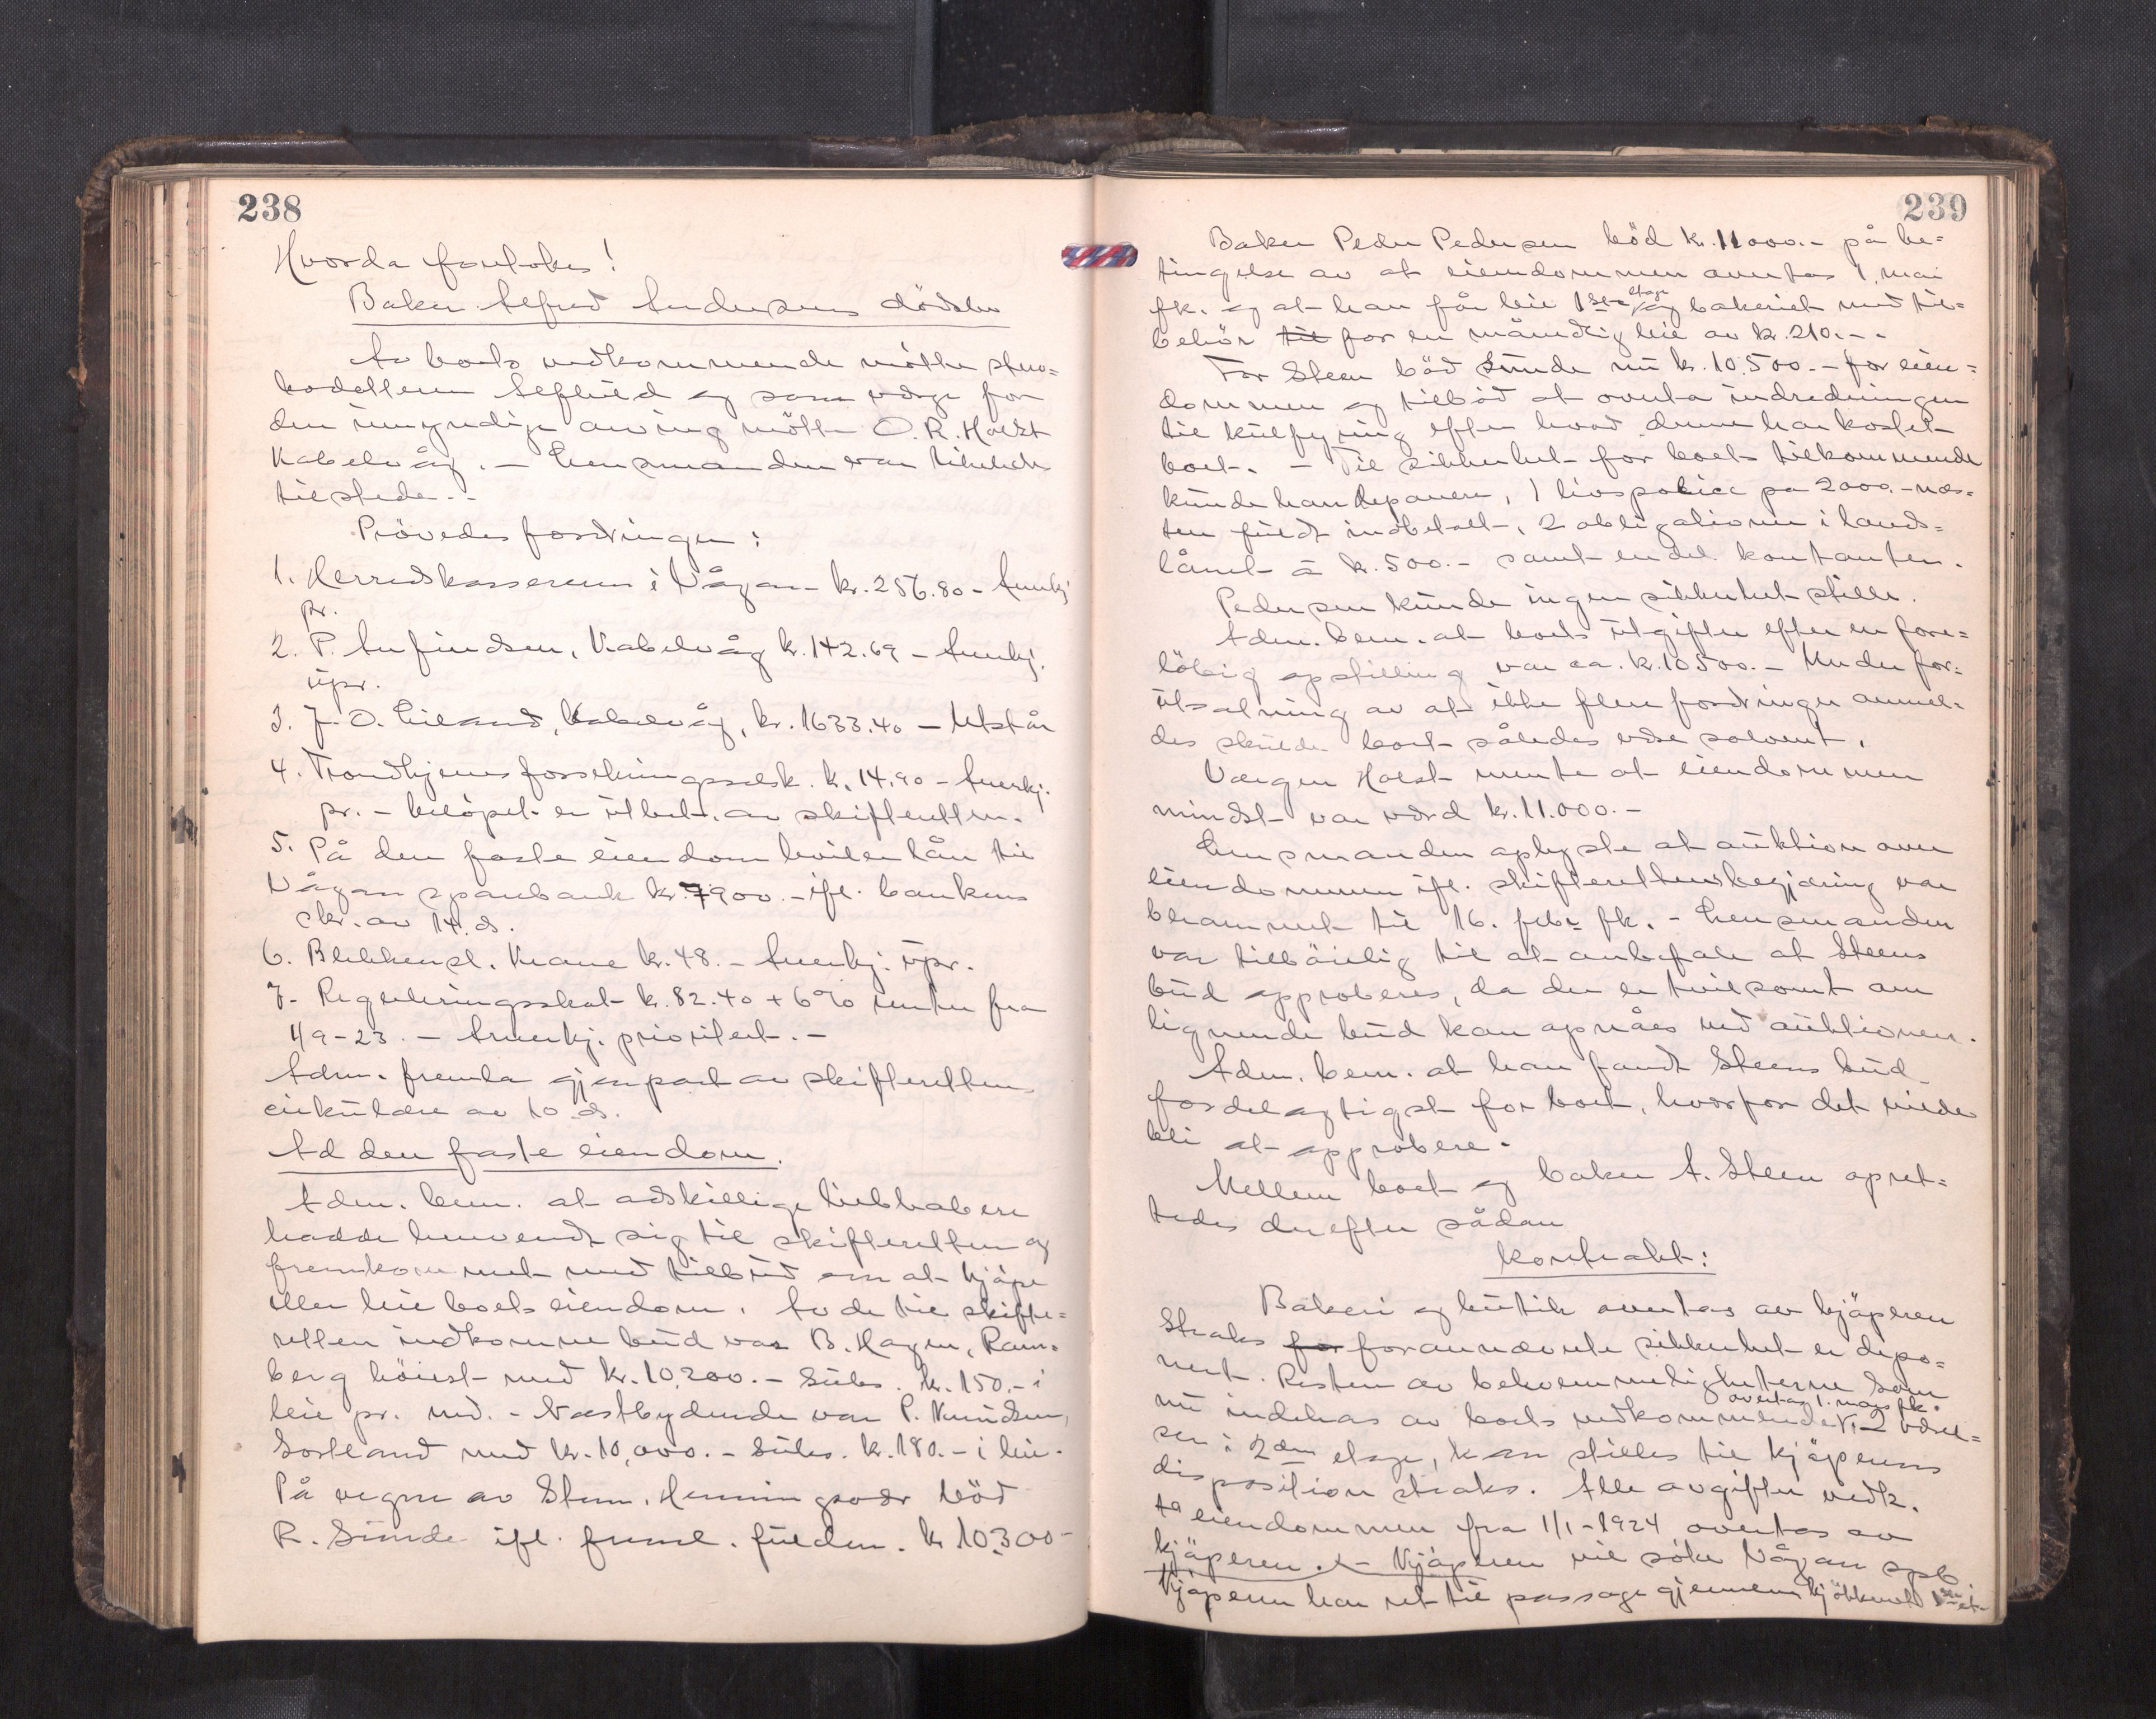 238
Hvorda foretokes!
Baker Alfred Andersens dödsbo
Av boets vedkommende mötte
den umyndige arving mötte O. R. Holst
Kabelvåg. – Lensmanden var likeledes
tilstede. -
Prövedes fordringer:
1. Herredskassereren i Vågan – kr. 256.80 – Anerkj.
pr.
2. P. Arfindsen, Kabelvåg kr. 142.69 – Anerkj.
upr.
3. J. O. Eiland, Kabelvåg, kr. 1633.40 – Utstår
4. Trondhjems forsikringsselsk. kr. 14.90 – Anerkj.
pr. – belöpet er utbet. av skifteretten.
5. På den faste eiendom hviler lån til
Vågan sparebank kr. 7900. – ifl. bankens
skr. av 14. ds.
6. Blikkensl. Krane kr. 48. – Anerkj. upr.
7. Reguleringsskat kr. 82.40 + 6% renter fra
1/9-23. – Anerkj. prioritert. –
Adm. fremla gjenpart av skifteretten
cirkulære av 10 ds.
Ad den faste eiendom.
Adm. bem. at adskillige liebhabere
hadde henvendt sig til skifteretten og
fremkommet med tilbud om at kjöpe
eller leie boets eiendom. Av de til skifte=
retten indkomne bud var B. Hagen, Ram-
berg höiest med kr. 10.200. – subs. kr. 150.- i
leie pr. md. – Næstbydende var P. Knudsen,
Sortland med kr. 10,000. – subs. kr. 180. – i leie.
På vegne av Steen, Henningsvær böd
R. Sunde ifl. freml. fuldm. kr 10.300-
239
Baker Peder Pedersen böd kr. 11000.– på be=
tingelse av at eiendommen overtas 1. mai
fk. og at han får leie 1ste etage og bakeriet med til=
behör til for en månedlig leie av kr. 210.– -
For Steen böd Sunde nu kr. 10.500. – for eien=
dommen og tilböd at overta indredningen
til kulfyring efter hvad denne har kostet
boet. – Til sikkerhet for boets tilkommende
kunde han deponere, 1 livspolice på 2000.– næs=
ten fuldt indbetalt, 2 obligationer i lands=
lånet à kr. 500.– samt endel kontanter.
Pedersen kunde ingen sikkerhet stille.
Adm. bem. at boets utgifter efter en fore=
löbig opstilling var ca. kr. 10500. – Under for=
utsætning av at ikke flere fordringer anmel=
des skulde boet således være solvent.
Værgen Holst mente at eiendommen
mindst var værd kr. 11.000. –
Lensmanden oplyste at auktion over
eiendommen ifl. skifterettens begjæring var
berammet til 16. febr fk. – Lensmanden
var tilböielig til at anbefale at Steens
bud approberes, da det er tvilsomt om
lignende bud kan opnåes ved auktionen.
Adm. bem. at han fandt Steens bud
fordelagtigst for boet, hvorfor det vilde
bli at approbere.
Mellem boet og baker A. Steen opret=
tedes derefter sådan
kontrakt:
Bakeri og butik overtas av kjöperen
straks for forannævnte sikkerhet er depo=
nert. Resten av bekvemmeligheterne som
nu indehas av boets vedkommende overtas 1. mars fk. 2 værel=
ser i 2den etage, kan stilles til kjöperens
disposition straks. Alle avgifter vedk.
eiendommen fra 1/1-1924 overtas av
kjöperen. – Kjöperen vil söke Vågan spb
Kjöperen har ret til passage gjennem kjökkenet 1ste et.